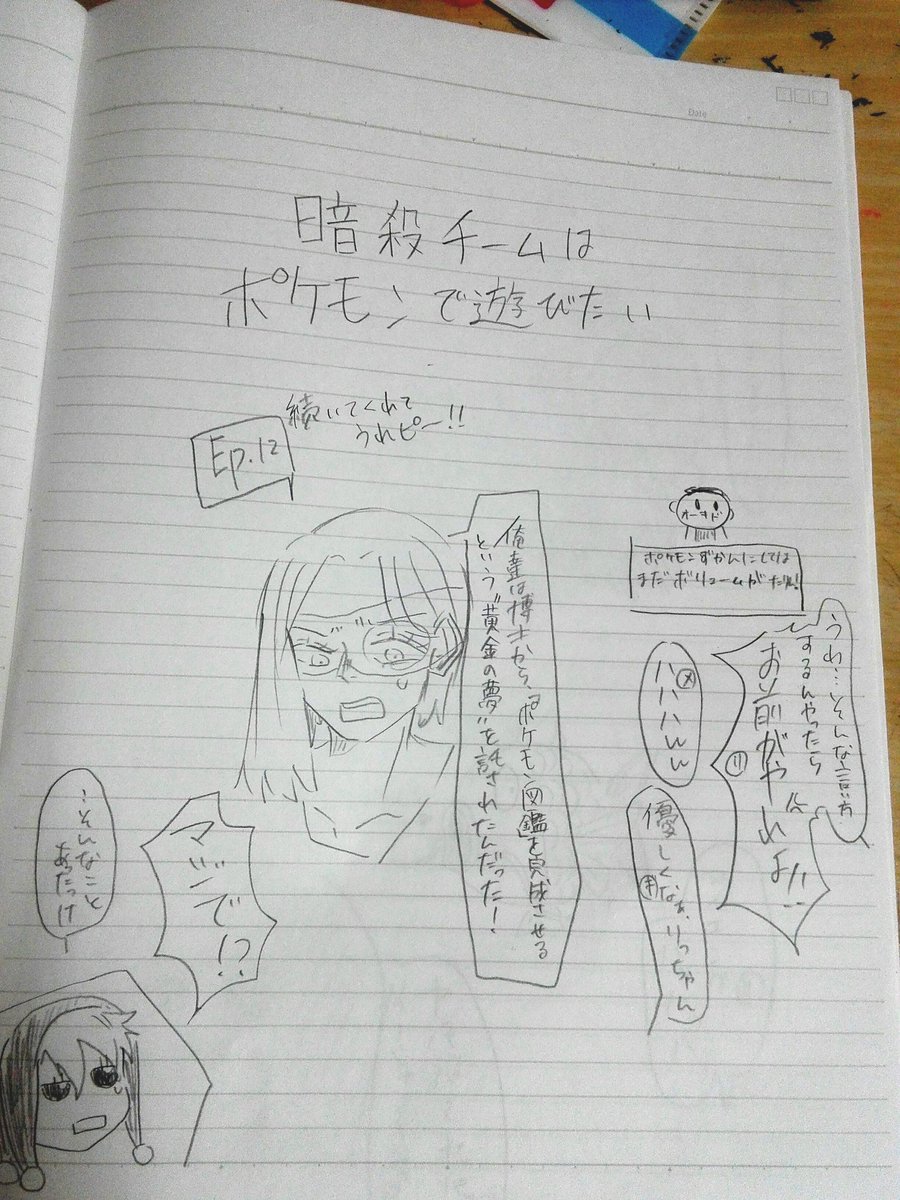 Date
暗殺チームは
ポケモンで遊びたい
Ep.12
続いてくれて
うれピー!!
オーキド
ポケモンずかんにしては
まだボリュームが
うわ…そんな言い方
するんやったら
お前がやれよ!!
リ
メ
ハハハハwww
優しくなぁ、りっちゃん
俺達は博士から、"ポケモン図鑑を完成させる
という"黄金の夢"を託されたんだった!
マジで!?
…そんなこと
あったっけ